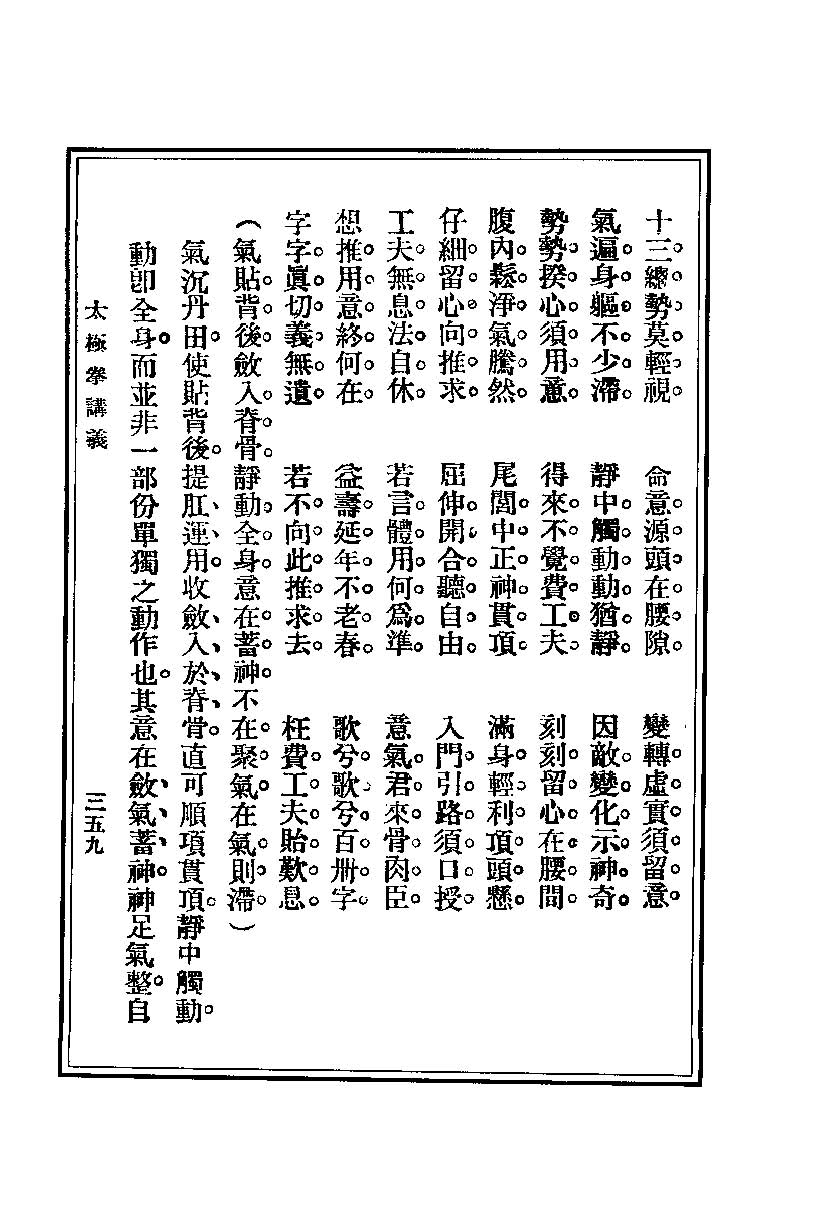 十三總勢莫輕視。　命意源頭在腰隙。　變轉虛實須留意。
氣遍身軀不少滯。　靜中觸動動猶靜。　因敵變化示神奇。
勢勢揆心須用意。　得來不覺費工夫。　刻刻留心在腰間。
腹內鬆淨氣騰然。　尾閭中正神貫頂。　滿身輕利頂頭懸。
仔細留心向推求。　屈伸開合聽自由。　入門引路須口授。
工夫無息法自休。　若言體用何爲準。　意氣君來骨肉臣。
想推用意終何在。　益壽延年不老春。　歌兮歌兮百卌字。
字字眞切義無遺。　若不向此推求去。　枉費工夫貽歎息。
（氣貼背後。斂入脊骨。靜動全身。意在蓄神。不在聚氣。在氣則滯。）
氣沉丹田。使貼背後。提肛、運用。收斂、入、於、脊、骨。直可順項貫頂。靜中觸動。
動卽全身。而並非一部份單獨之動作也。其意在斂、氣、蓄、神。神足氣整。自
太極拳講義
三五九